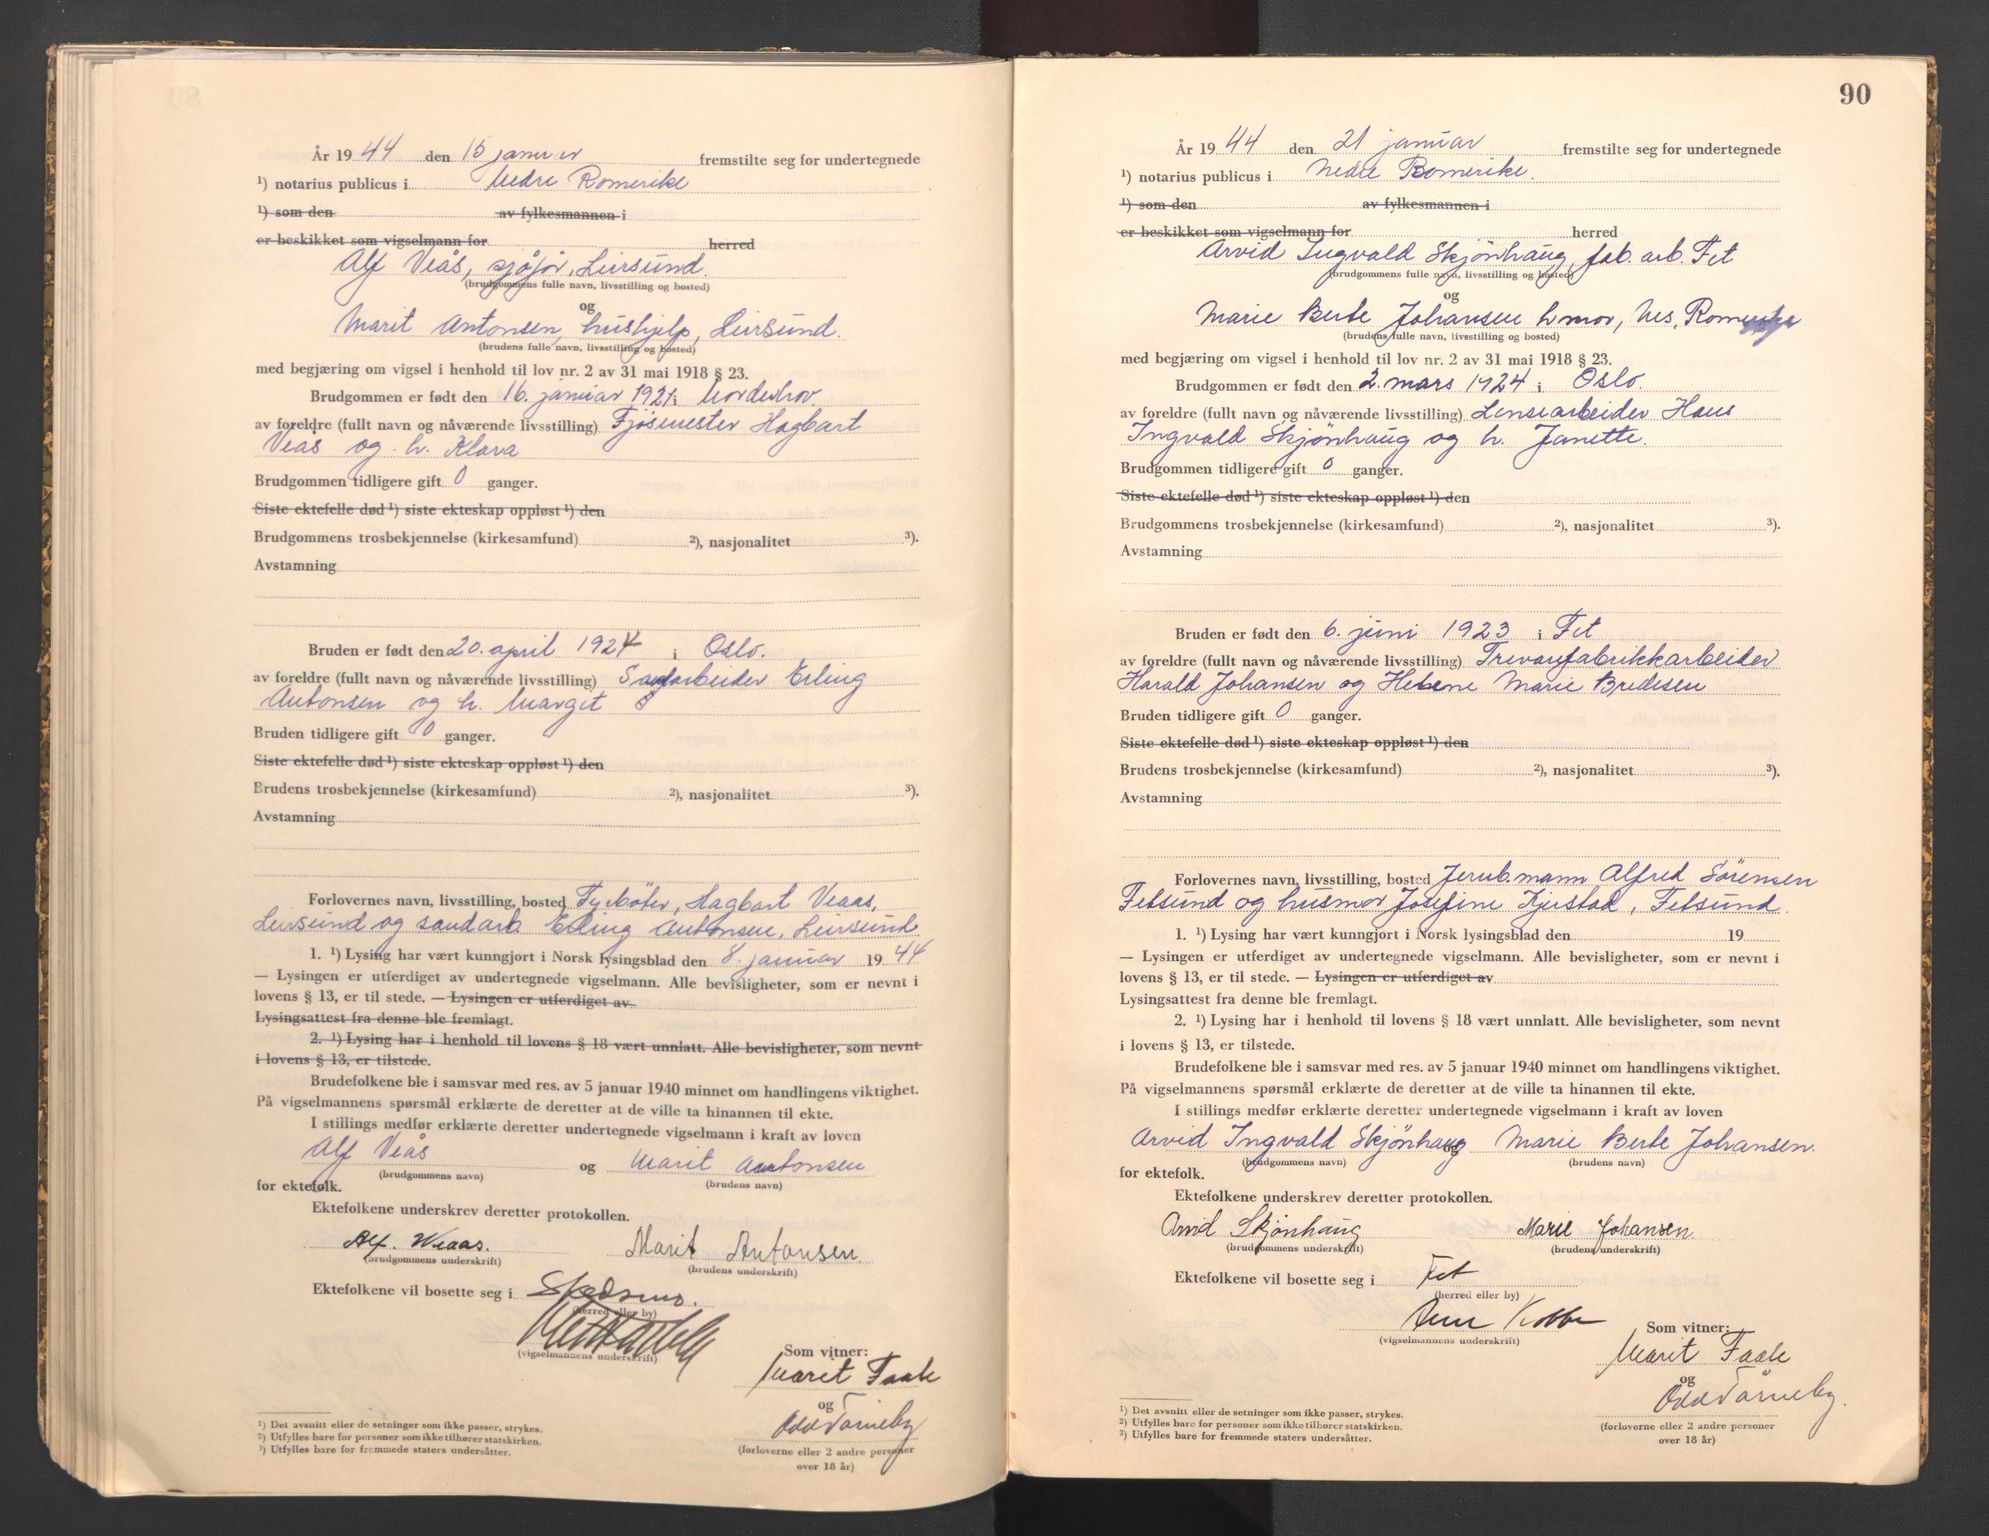 År 1944 den 15 januar fremstilte seg for undertegnede
¹) notarius publicus i Nedre Romerike
¹) som den av fylkesmannen i
er beskikket som vigselmann for herred
Alf Veås, sjåfør, Leirsund.
(brudgommens fulle navn, livsstilling og bosted)
og
Marit Antonsen, hushjelp, Leirsund.
(brudens fulle navn, livsstilling og bosted)
med begjæring om vigsel i henhold til lov nr. 2 av 31 mai 1918 § 23.
Brudgommen er født den 16. januar 1921 i Norderhov.
av foreldre (fullt navn og nåværende livsstilling) Fjøsmester Hagbart
Veås og h. Klara
Brudgommen tidligere gift 0 ganger.
Siste ektefelle død ¹) siste ekteskap oppløst ¹) den
Brudgommens trosbekjennelse (kirkesamfund) ²), nasjonalitet ³).
Avstamning
Bruden er født den 20. april 1924 i Oslo.
av foreldre (fullt navn og nåværende livsstilling) Sagarbeider Erling
Antonsen og h. Marget
Bruden tidligere gift 0 ganger.
Siste ektefelle død ¹) siste ekteskap oppløst ¹) den
Brudens trosbekjennelse (kirkesamfund) ²), nasjonalitet ³).
Avstamning
Forlovernes navn, livsstilling, bosted Hagbart Veaas,
Leirsund og sandarb. Erling Antonsen, Leirsund
1. ¹) Lysing har vært kunngjort i Norsk lysingsblad den 8. januar 1944
— Lysingen er utferdiget av undertegnede vigselmann. Alle bevisligheter, som er nevnt i
lovens § 13, er til stede. — Lysingen er utferdiget av
Lysingsattest fra denne ble fremlagt.
2. ¹) Lysing har i henhold til lovens § 18 vært unnlatt. Alle bevisligheter, som nevnt
i lovens § 13, er tilstede.
Brudefolkene ble i samsvar med res. av 5 januar 1940 minnet om handlingens viktighet.
På vigselmannens spørsmål erklærte de deretter at de ville ta hinannen til ekte.
I stillings medfør erklærte deretter undertegnede vigselmann i kraft av loven
Alf Veås og Marit Antonsen
(brudgommens navn) (brudens navn)
for ektefolk.
Ektefolkene underskrev deretter protokollen.
Alf. Weaas. Marit Antonsen.
(brudgommens underskrift) (brudens underskrift)
Ektefolkene vil bosette seg i Skedsmo.
(herred eller by)
(vigselmannens underskrift)
Som vitner:
Marit Faale
og
Odd Tårneby
(forloverne eller 2 andre personer
over 18 år)
¹) Det avsnitt eller de setninger som ikke passer, strykes.
²) Utfylles bare for personer som ikke tilhører statskirken.
³) Utfylles bare for fremmede staters undersåtter.
90
År 1944 den 21 januar fremstilte seg for undertegnede
¹) notarius publicus i Nedre Romerike.
¹) som den av fylkesmannen i
er beskikket som vigselmann for herred
Arvid Ingvald Skjönhaug, fab. arb. Fet
(brudgommens fulle navn, livsstilling og bosted)
og
Marie Berte Johansen h.mor, Nes, Romerike
(brudens fulle navn, livsstilling og bosted)
med begjæring om vigsel i henhold til lov nr. 2 av 31 mai 1918 § 23.
Brudgommen er født den 2. mars 1924 i Oslo.
av foreldre (fullt navn og nåværende livsstilling) Lensearbeider Hans
Ingvald Skjönhaug og h. Janette.
Brudgommen tidligere gift 0 ganger.
Siste ektefelle død ¹) siste ekteskap oppløst ¹) den
Brudgommens trosbekjennelse (kirkesamfund) ²), nasjonalitet ³).
Avstamning
Bruden er født den 6. juni 1923 i Fet
av foreldre (fullt navn og nåværende livsstilling) Trevarefabrikkarbeider
Harald Johansen og Helene Marie Bredesen
Bruden tidligere gift 0 ganger.
Siste ektefelle død ¹) siste ekteskap oppløst ¹) den
Brudens trosbekjennelse (kirkesamfund) ²), nasjonalitet ³).
Avstamning
Forlovernes navn, livsstilling, bosted Jernb.mann Alfred Sörensen
Fetsund og husmor Josefine Kjerstad, Fetsund.
1. ¹) Lysing har vært kunngjort i Norsk lysingsblad den 19
— Lysingen er utferdiget av undertegnede vigselmann. Alle bevisligheter, som er nevnt i
lovens § 13, er til stede. — Lysingen er utferdiget av
Lysingsattest fra denne ble fremlagt.
2. ¹) Lysing har i henhold til lovens § 18 vært unnlatt. Alle bevisligheter, som nevnt
i lovens § 13, er tilstede.
Brudefolkene ble i samsvar med res. av 5 januar 1940 minnet om handlingens viktighet.
På vigselmannens spørsmål erklærte de deretter at de ville ta hinannen til ekte.
I stillings medfør erklærte deretter undertegnede vigselmann i kraft av loven
Arvid Ingvald Skjönhaug og Marie Berte Johansen.
(brudgommens navn) (brudens navn)
for ektefolk.
Ektefolkene underskrev deretter protokollen.
Arvid Skjønhaug Marie Johansen.
(brudgommens underskrift) (brudens underskrift)
Ektefolkene vil bosette seg i Fet
(herred eller by)
(vigselmannens underskrift)
Som vitner:
Marit Faale
og
Odd Tårneby.
(forloverne eller 2 andre personer
over 18 år)
¹) Det avsnitt eller de setninger som ikke passer, strykes.
²) Utfylles bare for personer som ikke tilhører statskirken.
³) Utfylles bare for fremmede staters undersåtter.